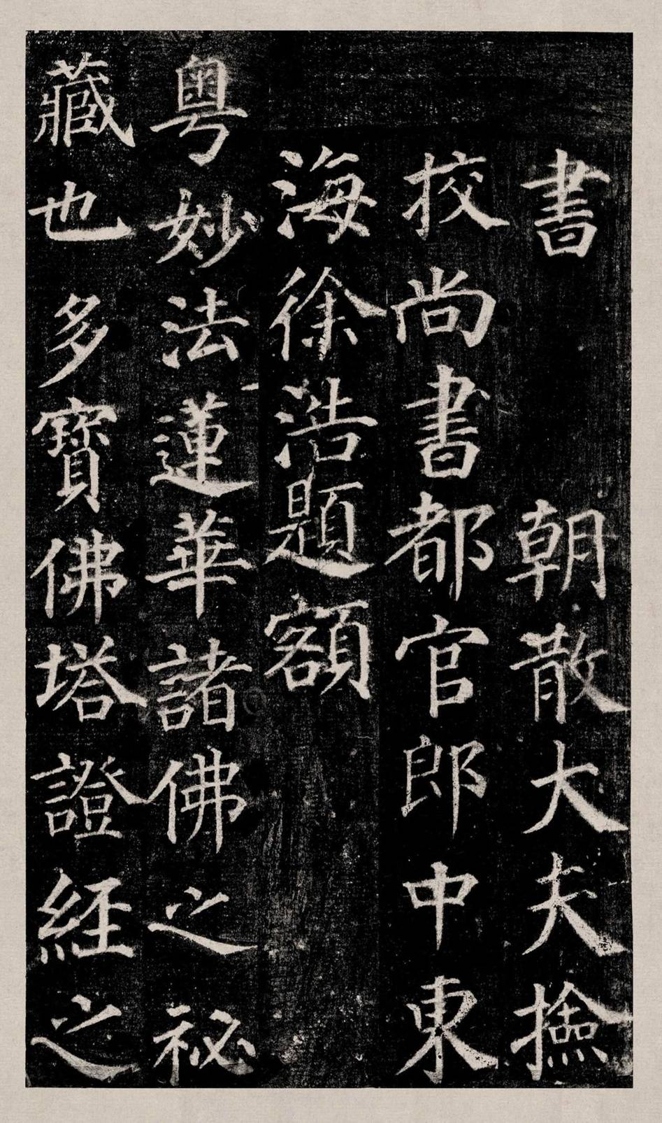 書 朝散大夫撿
挍尚書都官郎中東
海徐浩題額
粵妙法蓮華諸佛之祕
藏也多寶佛塔證經之